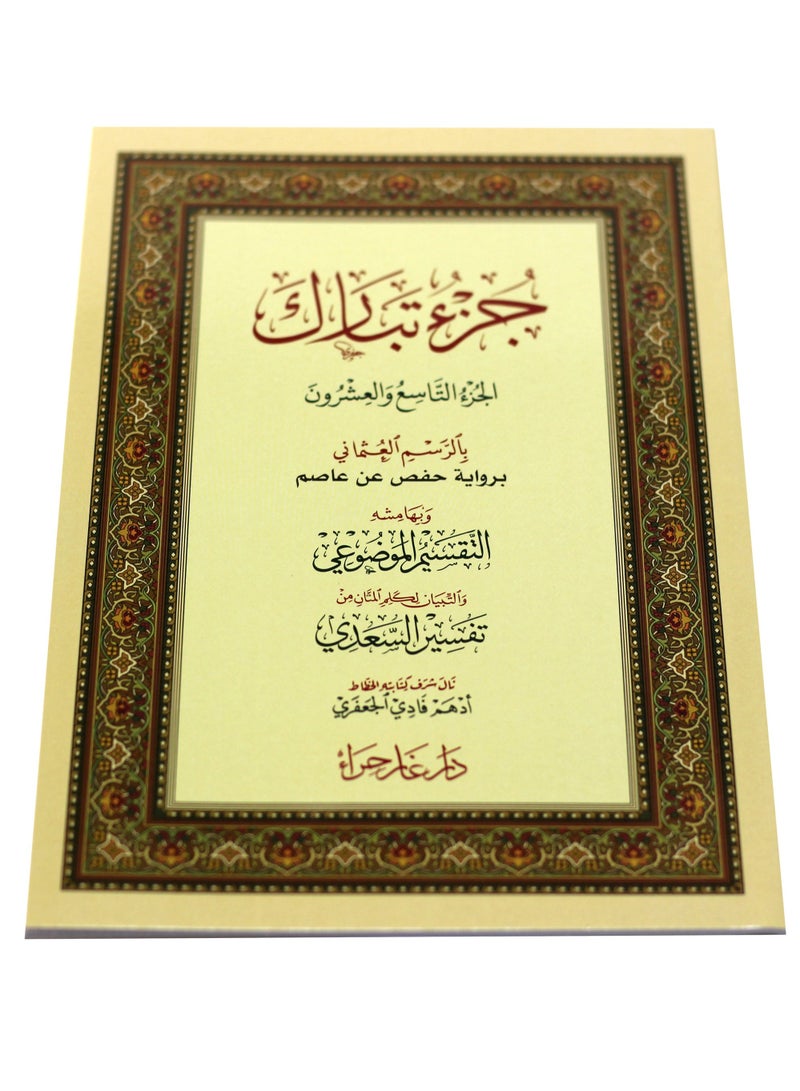 جُزْءُ تَبَارَكَ
الجُزْءُ التَّاسِعُ وَالعِشْرُونَ
بِٱلرَّسْمِ ٱلعُثْمَاني
برواية حفص عن عاصم
وَبِهَامِشِهِ
التَّقْسِيْمُ المَوْضُوْعِيْ
وَالتِّبْيَان لِكَلِمِ المَنَّانِ مِنْ
تَفْسِيْرِ السَّعْدِي
نَالَ شَرَفَ كِتَابَتِهِ الخَطَّاط
أَدْهَمْ فَادِي ٱلجَعْفَرِيْ
دَار غَار حِرَاء